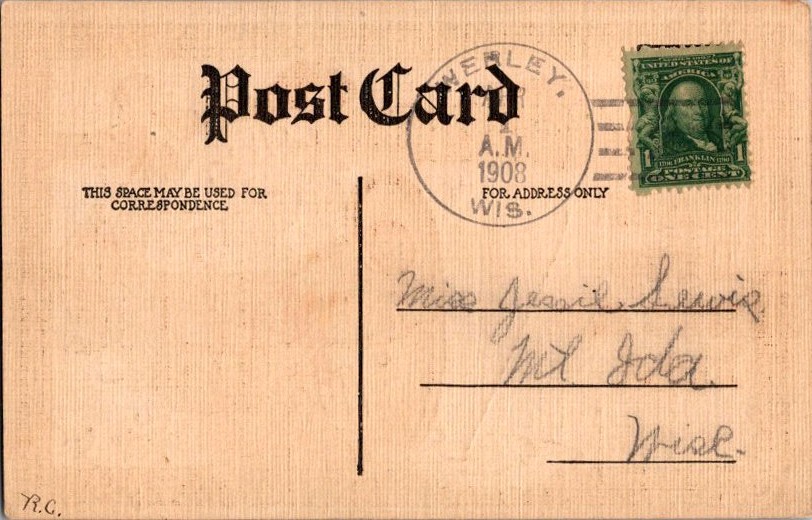 Post Card
WERLEY,
APR
1
A.M.
1908
WIS.
UNITED STATES OF
AMERICA
1 1706 FRANKLIN 1790 1
POSTAGE
ONE CENT
THIS SPACE MAY BE USED FOR
CORRESPONDENCE
FOR ADDRESS ONLY
Miss Jessie Lewis
Mt Ida.
Wisc.
R.C.